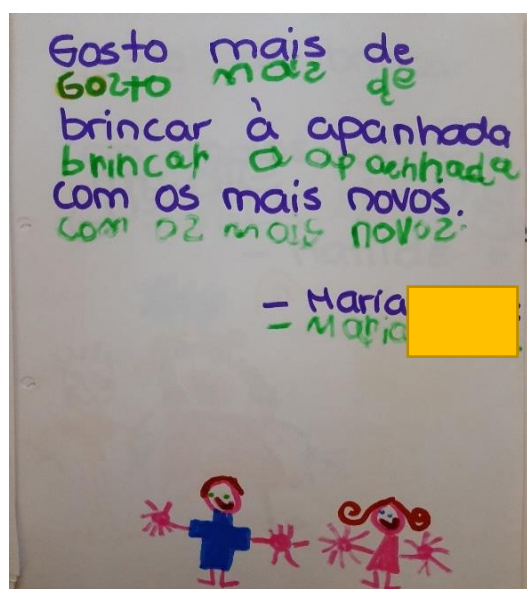 Gosto mais de
Gozto maiz de
brincar à apanhada
brincar a apanhada
com os mais novos.
com oz mais novoz.
- Maria
- Maria